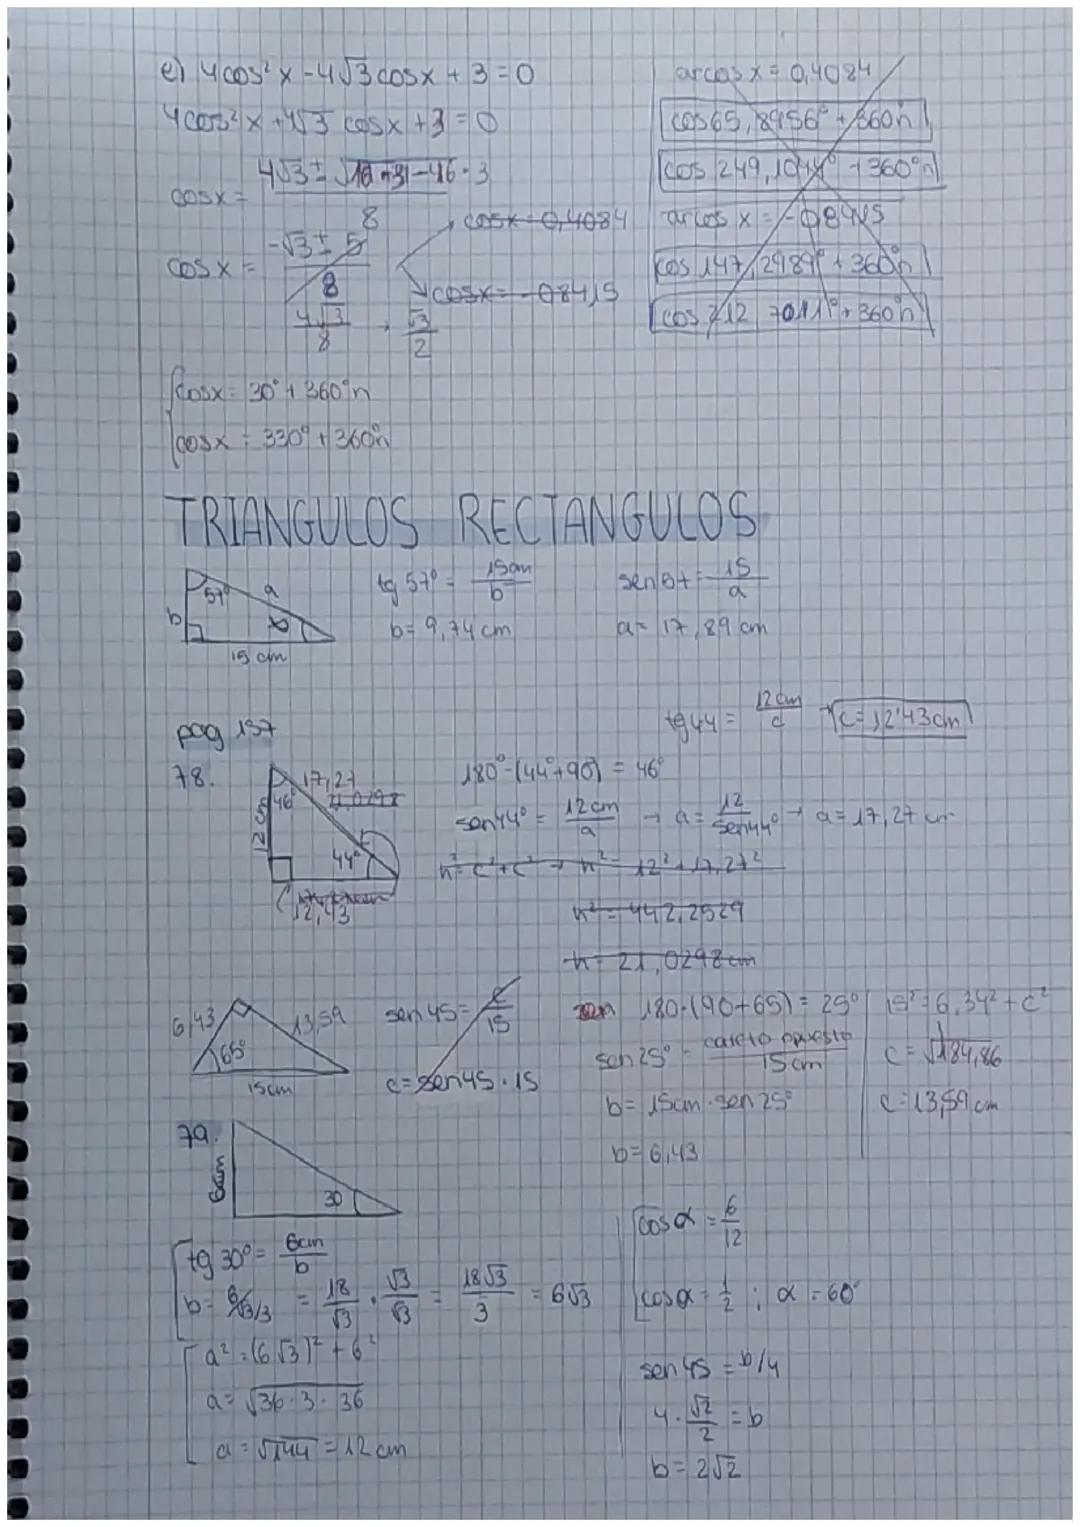 e) 4cos²x - 4√3 cosx + 3 = 0
4cos²x + 4√3 cosx + 3 = 0
cosx =
8
cosx = -√3 ± 5
8
cosx = 0,4084
cosx = -0,8415
4√3
8
, √3
2
cosx = 30° + 360°n
cosx = 330° + 360°n
arcos x = 0,4084
cos 65,8956° + 360n
cos 249,1044° + 360°n
arcos x = -0,8415
cos 147,2989° + 360°n
cos 212,7011° + 360°n
TRIANGULOS RECTANGULOS
57°
a
b
15 cm
tg 57° = 15cm
b
b = 9,74 cm
15
a
a = 17,89 cm
pag 137
78.
17,27
46°
44°
12,43
tg 44 = 12 cm
c
c = 12'43 cm
180° - (44° + 90°) = 46°
sen 44° = 12 cm
a
→ a = 12
sen 44°
→ a = 17,27 cm
h² = c² + c² → h² = 12² + 17,27²
h² = 442,2529
h = 21,0298 cm
6,43
13,59
65°
15cm
sen 45 = c
15
c = sen 45 · 15
180 - (90 + 65) = 25°
sen 25° = cateto opuesto
15 cm
b = 15cm · sen 25°
b = 6,43
15² = 6,34² + c²
c = √184,86
c = 13,59 cm
79.
6cm
30
tg 30° = 6cm
b
b = 6
√3/3
= 18
√3
· √3
√3
= 18√3
3
= 6√3
a² = (6√3)² + 6²
a = √36 · 3 · 36
a = √144 = 12 cm
cos α = 6
12
cos α = 1
2
; α = 60°
sen 45 = b/4
4 · √2
2
= b
b = 2√2